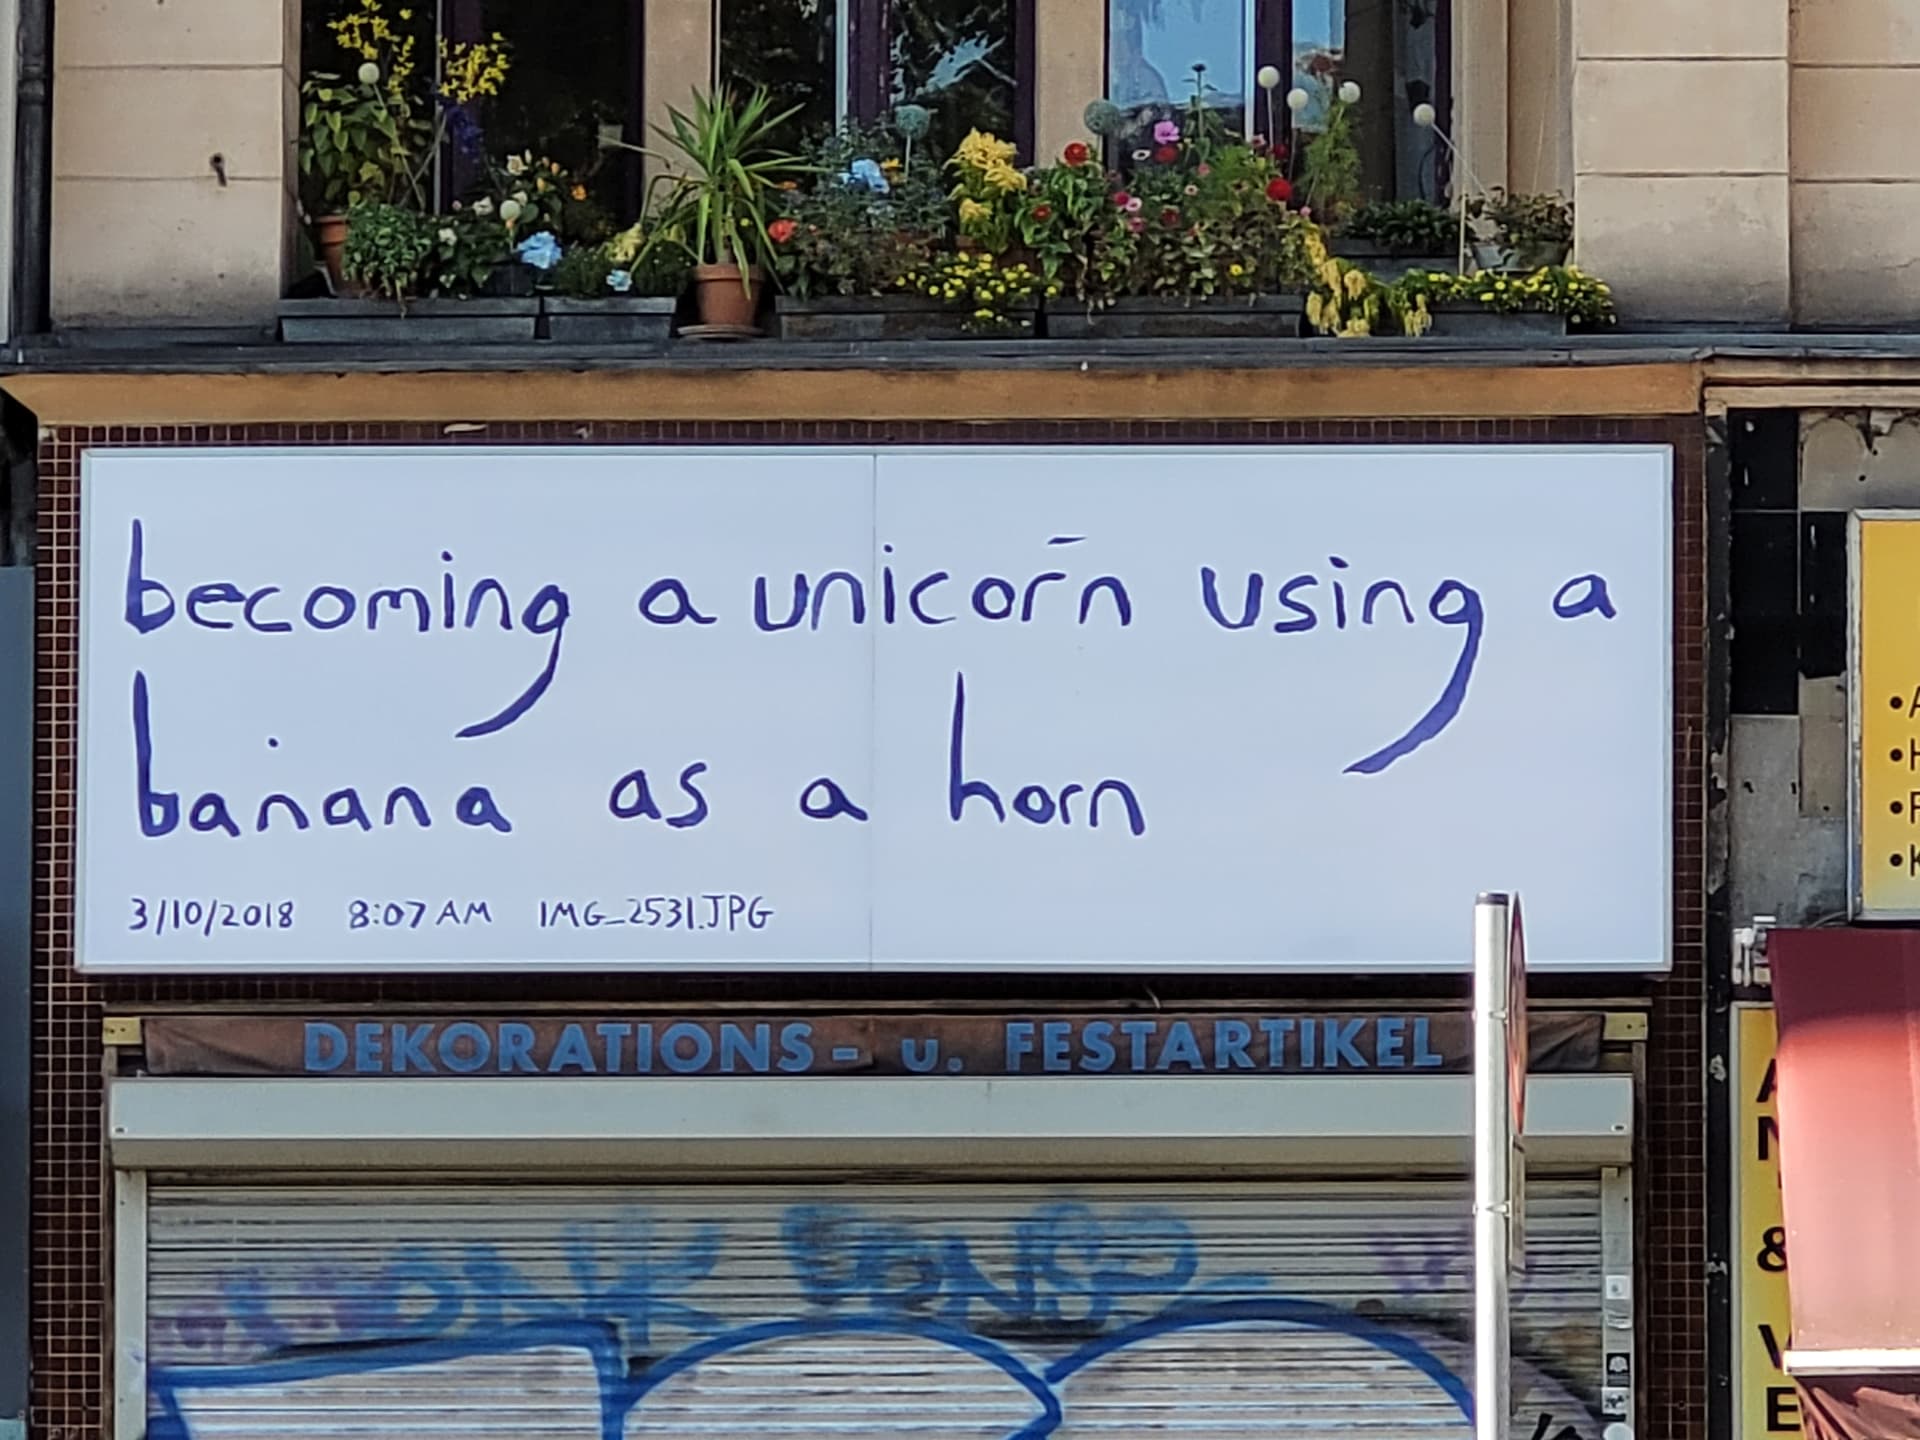 becoming a unicorn using a
banana as a horn
3/10/2018 8:07 AM IMG_2531.JPG
DEKORATIONS- u. FESTARTIKEL